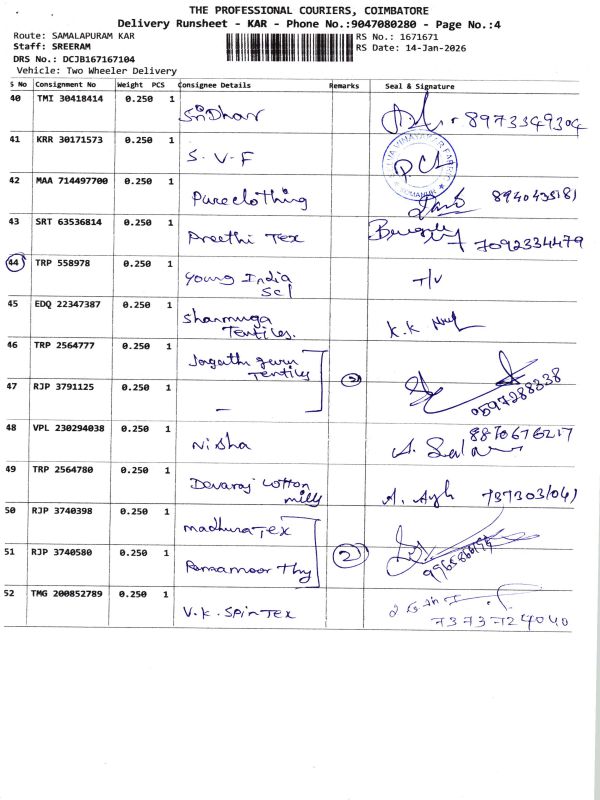 THE PROFESSIONAL COURIERS, COIMBATORE
Delivery Runsheet - KAR - Phone No.:9047080280 - Page No.:4
Route: SAMALAPURAM KAR
RS No.: 1671671
Staff: SREERAM
RS Date: 14-Jan-2026
DRS No.: DCJB167167104
Vehicle: Two Wheeler Delivery
S No Consignment No Weight PCS Consignee Details Remarks Seal & Signature
40 TMI 30418414 0.250 1 Sridhar 8973349304
41 KRR 30171573 0.250 1 S.V.F
42 MAA 714497700 0.250 1 Pureclothing
43 SRT 63536814 0.250 1 Preethi Tex 7092334479
44 TRP 558978 0.250 1 Young India T/V
Scl
45 EDQ 22347387 0.250 1 Shanmuga K.K
Textiles.
46 TRP 2564777 0.250 1 Jagathguru
Textiles
47 RJP 3791125 0.250 1 — 9597288338
48 VPL 230294038 0.250 1 Nisha 8870676217
49 TRP 2564780 0.250 1 Devaraj Cotton
mills
50 RJP 3740398 0.250 1 Madhura Tex
51 RJP 3740580 0.250 1 Ramamoorthy 2
52 TMG 200852789 0.250 1 V.K. Spin Tex
7373724040